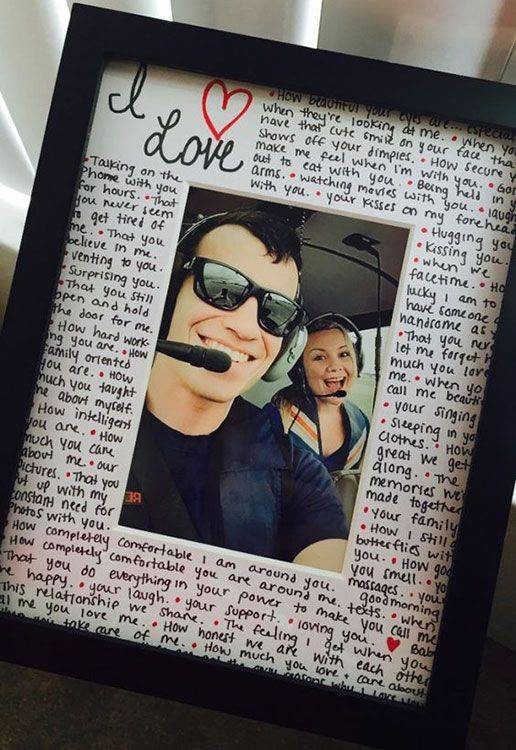 I
Love
• How beautiful your eyes are... especially
when they're looking at me. • when you
have that cute smile on your face that
shows off your dimples. • How secure y
make me feel when I'm with you. • Goi
out to eat with you. • Being held in
arms. • watching movies with you. • laugh
with you. • your kisses on my forehea
• Talking on the
phone with you
for hours. • That
you never seem
to get tired of
me. • That you
believe in me.
• Venting to you.
• Surprising you.
• That you still
open and hold
the door for me.
• How hard work-
ing you are. • How
family oriented
you are. • How
much you taught
me about myself.
• How intelligent
you are. • How
much you care
about me. • our
pictures. • That you
put up with my
constant need for
photos with you.
• Hugging you
• Kissing you.
• when we
facetime. • Ho
lucky I am to
have someone
handsome as
• That you nev
let me forget h
much you love
me. • when yo
call me beauti
• your singing
• Sleeping in yo
clothes. • How
great we get
along. • The
memories we
made together
• your family
• How I still
butterflies wit
you. • How goo
you smell. • yo
• How completely comfortable I am around you. massages. • you
• How completely comfortable you are around me. texts. • when
• That you do everything in your power to make you call me
me happy. • your laugh. • your support. • loving you. Bab
This relationship we share. • The feeling I get when you
tell me you love me. • How honest we are with each other
you take care of me. • How much you love + care about
reasons why I love you
ER